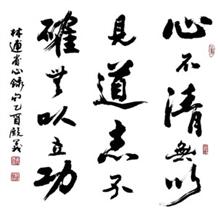 心不清無以
見道志不
確無以立功
林逋省心録句乙酉